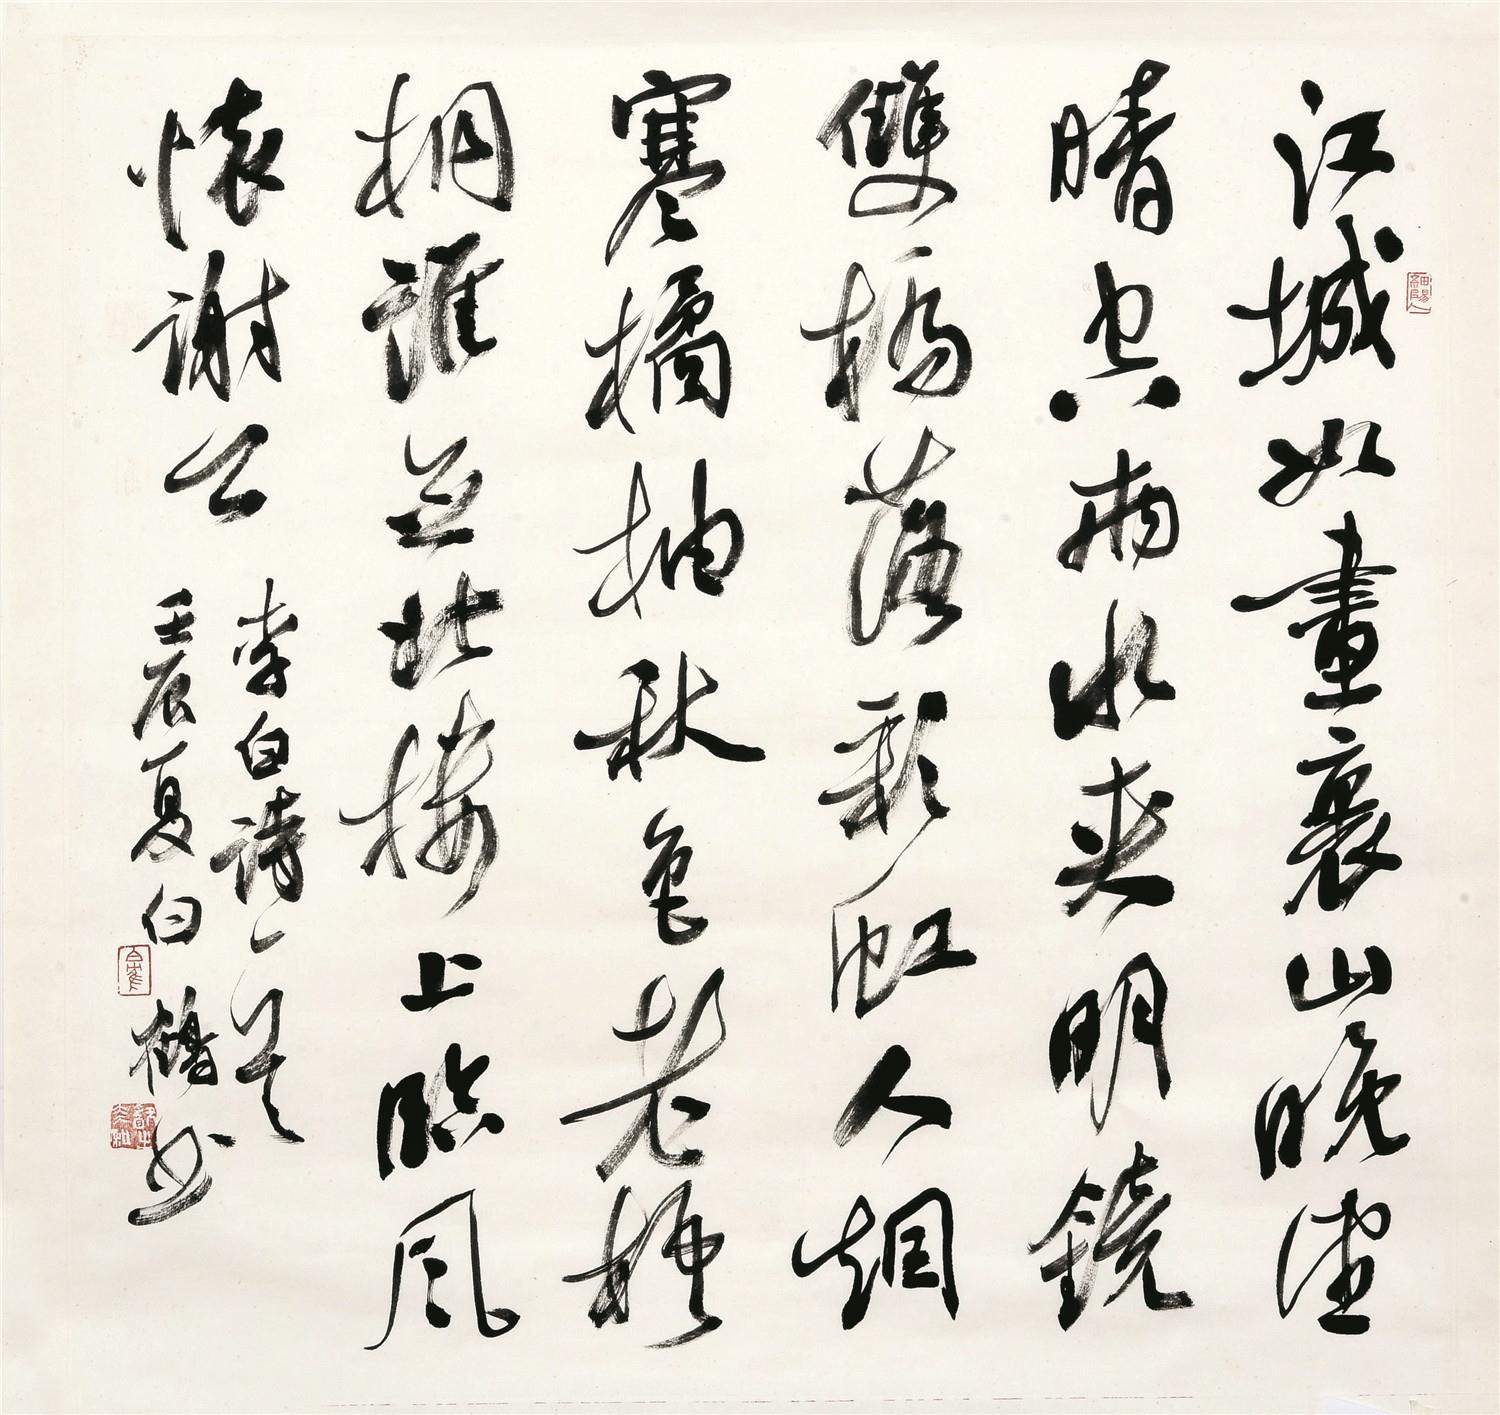 江城如畫裏山晚望
晴空兩水夾明鏡
雙橋落彩虹人烟
寒橘柚秋色老梧
桐誰念北樓上臨風
懷謝公
李白詩一首
壬辰夏白鶴書